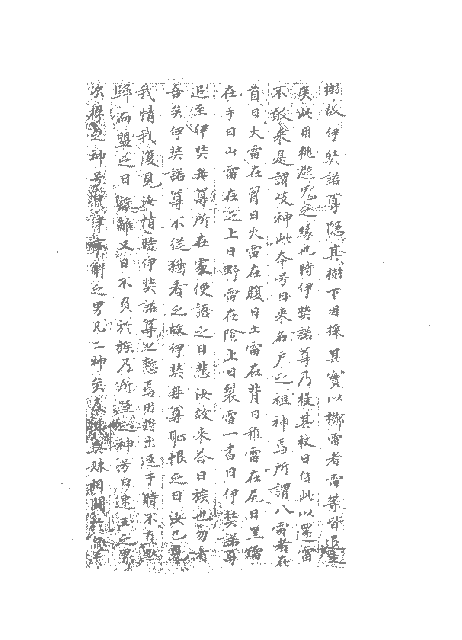 樹故伊奘諾尊隠其樹下因採其實以擲雷者雷等皆退走
矣此用桃避鬼之縁也時伊奘諾尊乃投其杖曰自此以還雷
不敢来是謂岐神此本号曰来名戸之祖神焉所謂八雷者在
首曰大雷在胷曰火雷在腹曰土雷在背曰稚雷在尻曰黒雷
在手曰山雷在足上曰野雷在陰上曰裂雷一書曰伊奘諾尊
追至伊奘冉尊所在處便語之曰悲汝故来荅曰族也勿看
吾矣伊奘諾尊不従猶看之故伊奘冉尊恥恨之曰汝已見
我情我復見汝情時伊奘諾尊亦慙焉因将出返于時不直黙
歸而盟之曰族離又曰不負於族乃所唾之神号曰速玉之男
次掃之神号泉津事解之男凡二神矣及其與妹相闘於泉平